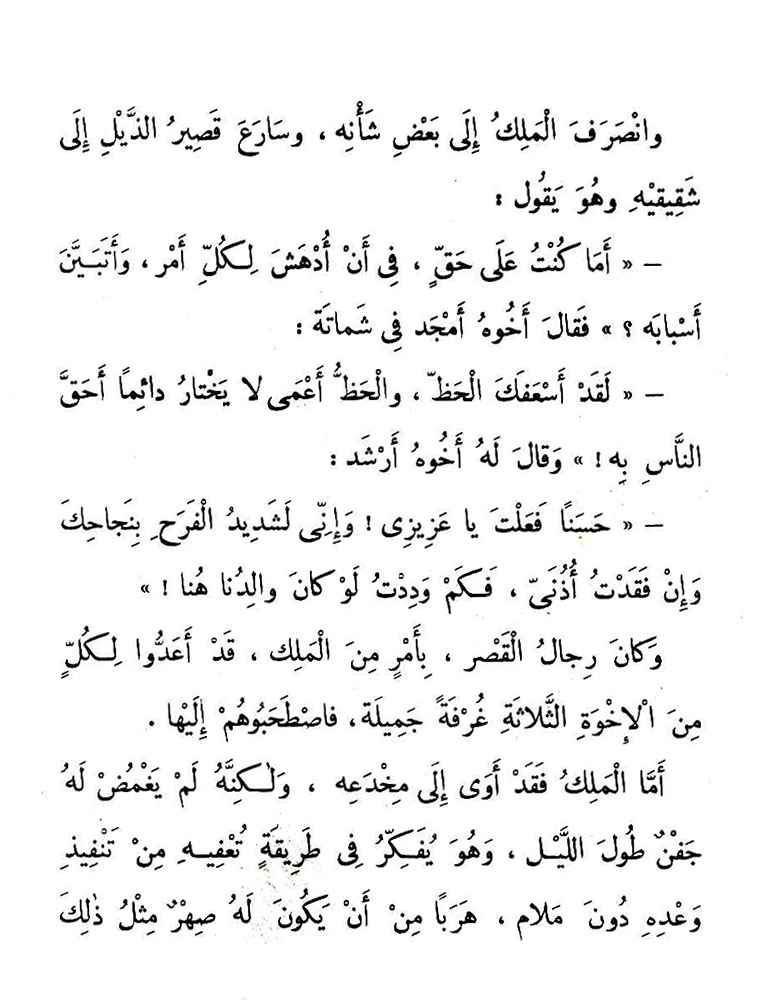 وانْصَرَفَ الْمَلِكُ إِلَى بَعْضِ شَأْنِه ، وسَارَعَ قَصِيرُ الذَّيْلِ إِلَى
شَقِيقيْهِ وهُوَ يَقُول :
– « أَمَا كُنْتُ عَلَى حَقٍّ ، فِى أَنْ أُدْهَشَ لِكُلِّ أَمْر ، وَأَتَبَيَّنَ
أَسْبابَه ؟ » فَقالَ أَخُوهُ أَمْجَد فِى شَماتَة :
– « لَقَدْ أَسْعَفَكَ الْحَظّ ، والْحَظُّ أَعْمَى لا يَخْتارُ دائِماً أَحَقَّ
النَّاسِ بِه ! » وَقالَ لَهُ أَخُوهُ أَرْشَد :
– « حَسَنًا فَعَلْتَ يا عَزِيزِى ! وَإِنِّى لَشَدِيدُ الْفَرَحِ بِنَجاحِكَ
وَإِنْ فَقَدْتُ أُذُنَىّ ، فَكَمْ وَدِدْتُ لَوْ كانَ والِدُنا هُنا ! »
وَكانَ رِجالُ الْقَصْر ، بِأَمْرٍ مِنَ الْمَلِك ، قَدْ أَعَدُّوا لِكُلٍّ
مِنَ الْإِخْوَةِ الثَّلاثَةِ غُرْفَةً جَمِيلَة ، فاصْطَحَبُوهُمْ إِلَيْها .
أَمَّا الْمَلِكُ فَقَدْ أَوَى إِلَى مِخْدَعِه ، وَلٰكِنَّهُ لَمْ يَغْمُضْ لَهُ
جَفْنٌ طُولَ اللَّيْل ، وَهُوَ يُفَكِّرُ فِى طَرِيقَةٍ تُعْفِيهِ مِنْ تَنْفِيذِ
وَعْدِهِ دُونَ مَلام ، هَرَبًا مِنْ أَنْ يَكُونَ لَهُ صِهْرٌ مِثْلُ ذٰلِكَ